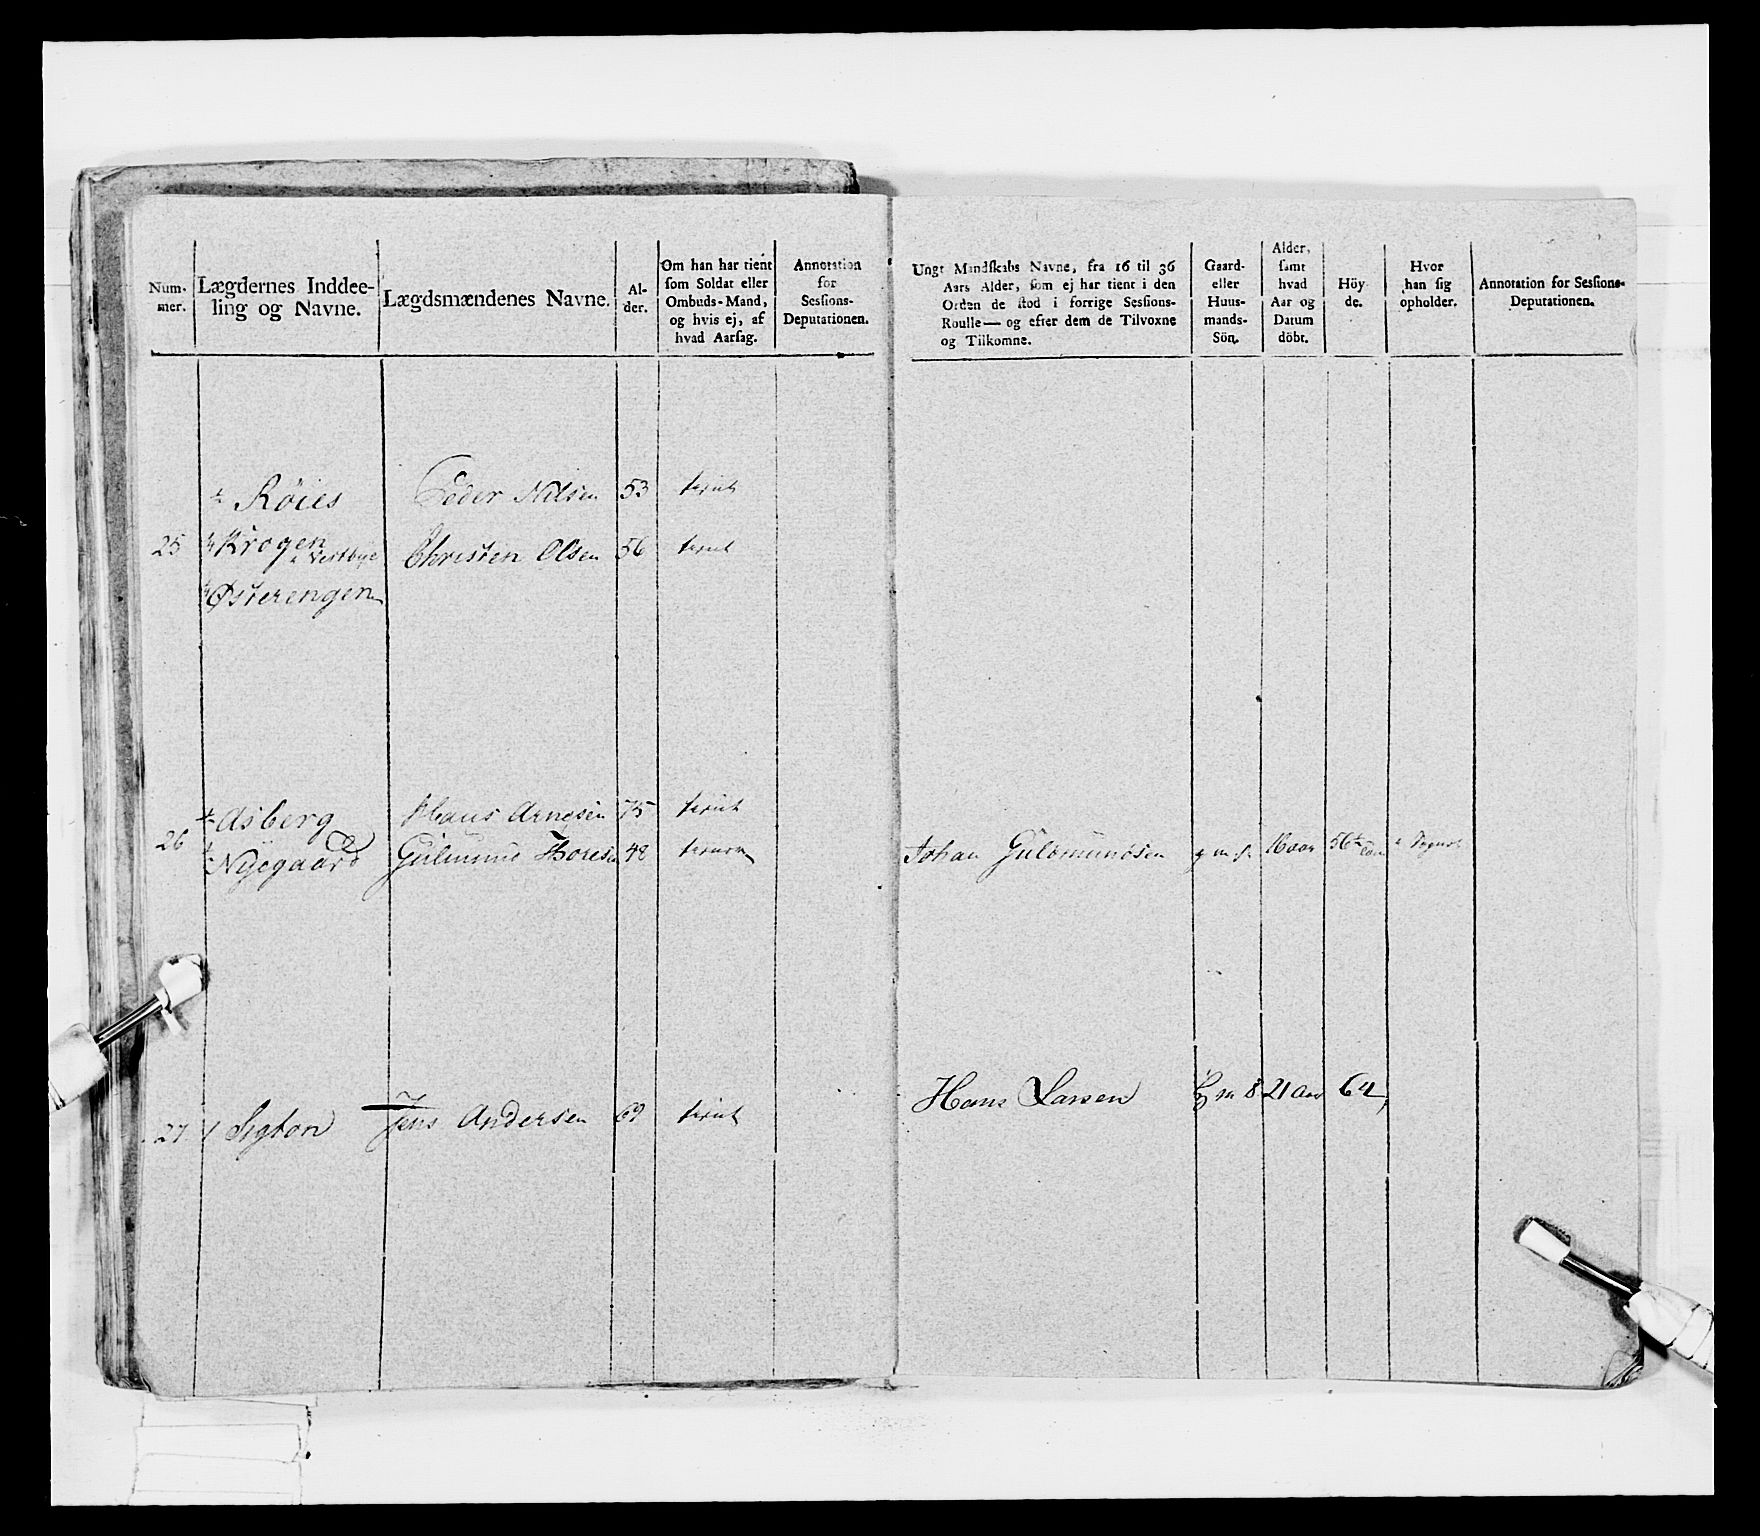 Num-
mer.
Lægdernes Inddee-
ling og Navne.
Lægdsmændenes Navne.
Al-
der.
Om han har tient
som Soldat eller
Ombuds-Mand,
og hvis ej, af
hvad Aarsag.
Annotation
for
Sessions-
Deputationen.
Ungt Mandskabs Navne, fra 16 til 36
Aars Alder, som ej har tient i den
Orden de stod i forrige Sessions-
Roulle— og efter dem de Tilvoxne
og Tilkomne.
Gaard-
eller
Huus-
mands-
Sön.
Alder,
samt
hvad
Aar og
Datum
döbt.
Höy-
de.
Hvor
han sig
opholder.
Annotation for Sessions-
Deputationen.
½ Röies Peder Nilsen 53 tient
25 ¼ Krogen Christen Olsen 56 tient
Vestbye
¼ Østerengen
½ Asberg Hans Arnesen 75 tient
26 ½ Nyegaard Thoresen 48
Johan Guldmundsen 16 aar 56½
27 1 Sigton Jens Andersen 69 tient
Hans Larsen G m S 21 aar 64